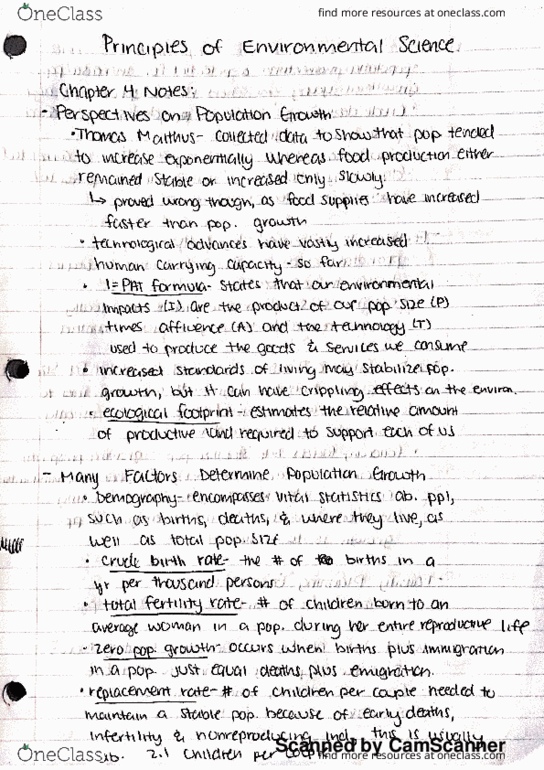 OneClass
find more resources at oneclass.com
Principles of Environmental Science
Chapter 4 Notes:
- Perspectives on Population Growth
• Thomas Malthus- collected data to show that pop tended
to increase exponentially whereas food production either
remained stable or increased only slowly.
↳ proved wrong though, as food supplies have increased
faster than pop. growth
• technological advances have vastly increased
human carrying capacity - so far.
• I=PAT formula- states that our environmental
impacts (I) are the product of our pop size (P)
times affluence (A) and the technology (T)
used to produce the goods & services we consume
• increased standards of living may stabilize pop.
growth, but it can have crippling effects on the environ.
• ecological footprint - estimates the relative amount
of productive land required to support each of us
- Many Factors Determine Population Growth
• Demography- encompasses vital statistics ab. ppl,
such as births, deaths, & where they live, as
well as total pop. size
• crude birth rate- the # of births in a
yr per thousand persons
• total fertility rate- # of children born to an
average woman in a pop. during her entire reproductive life
• zero pop. growth- occurs when births plus immigration
in a pop. just equal deaths plus emigration.
• replacement rate- # of children per couple needed to
maintain a stable pop. because of early deaths,
infertility & nonreproducing ind., this is usually
ab. 2.1 children per
Scanned by CamScanner
OneClass
find more resources at oneclass.com